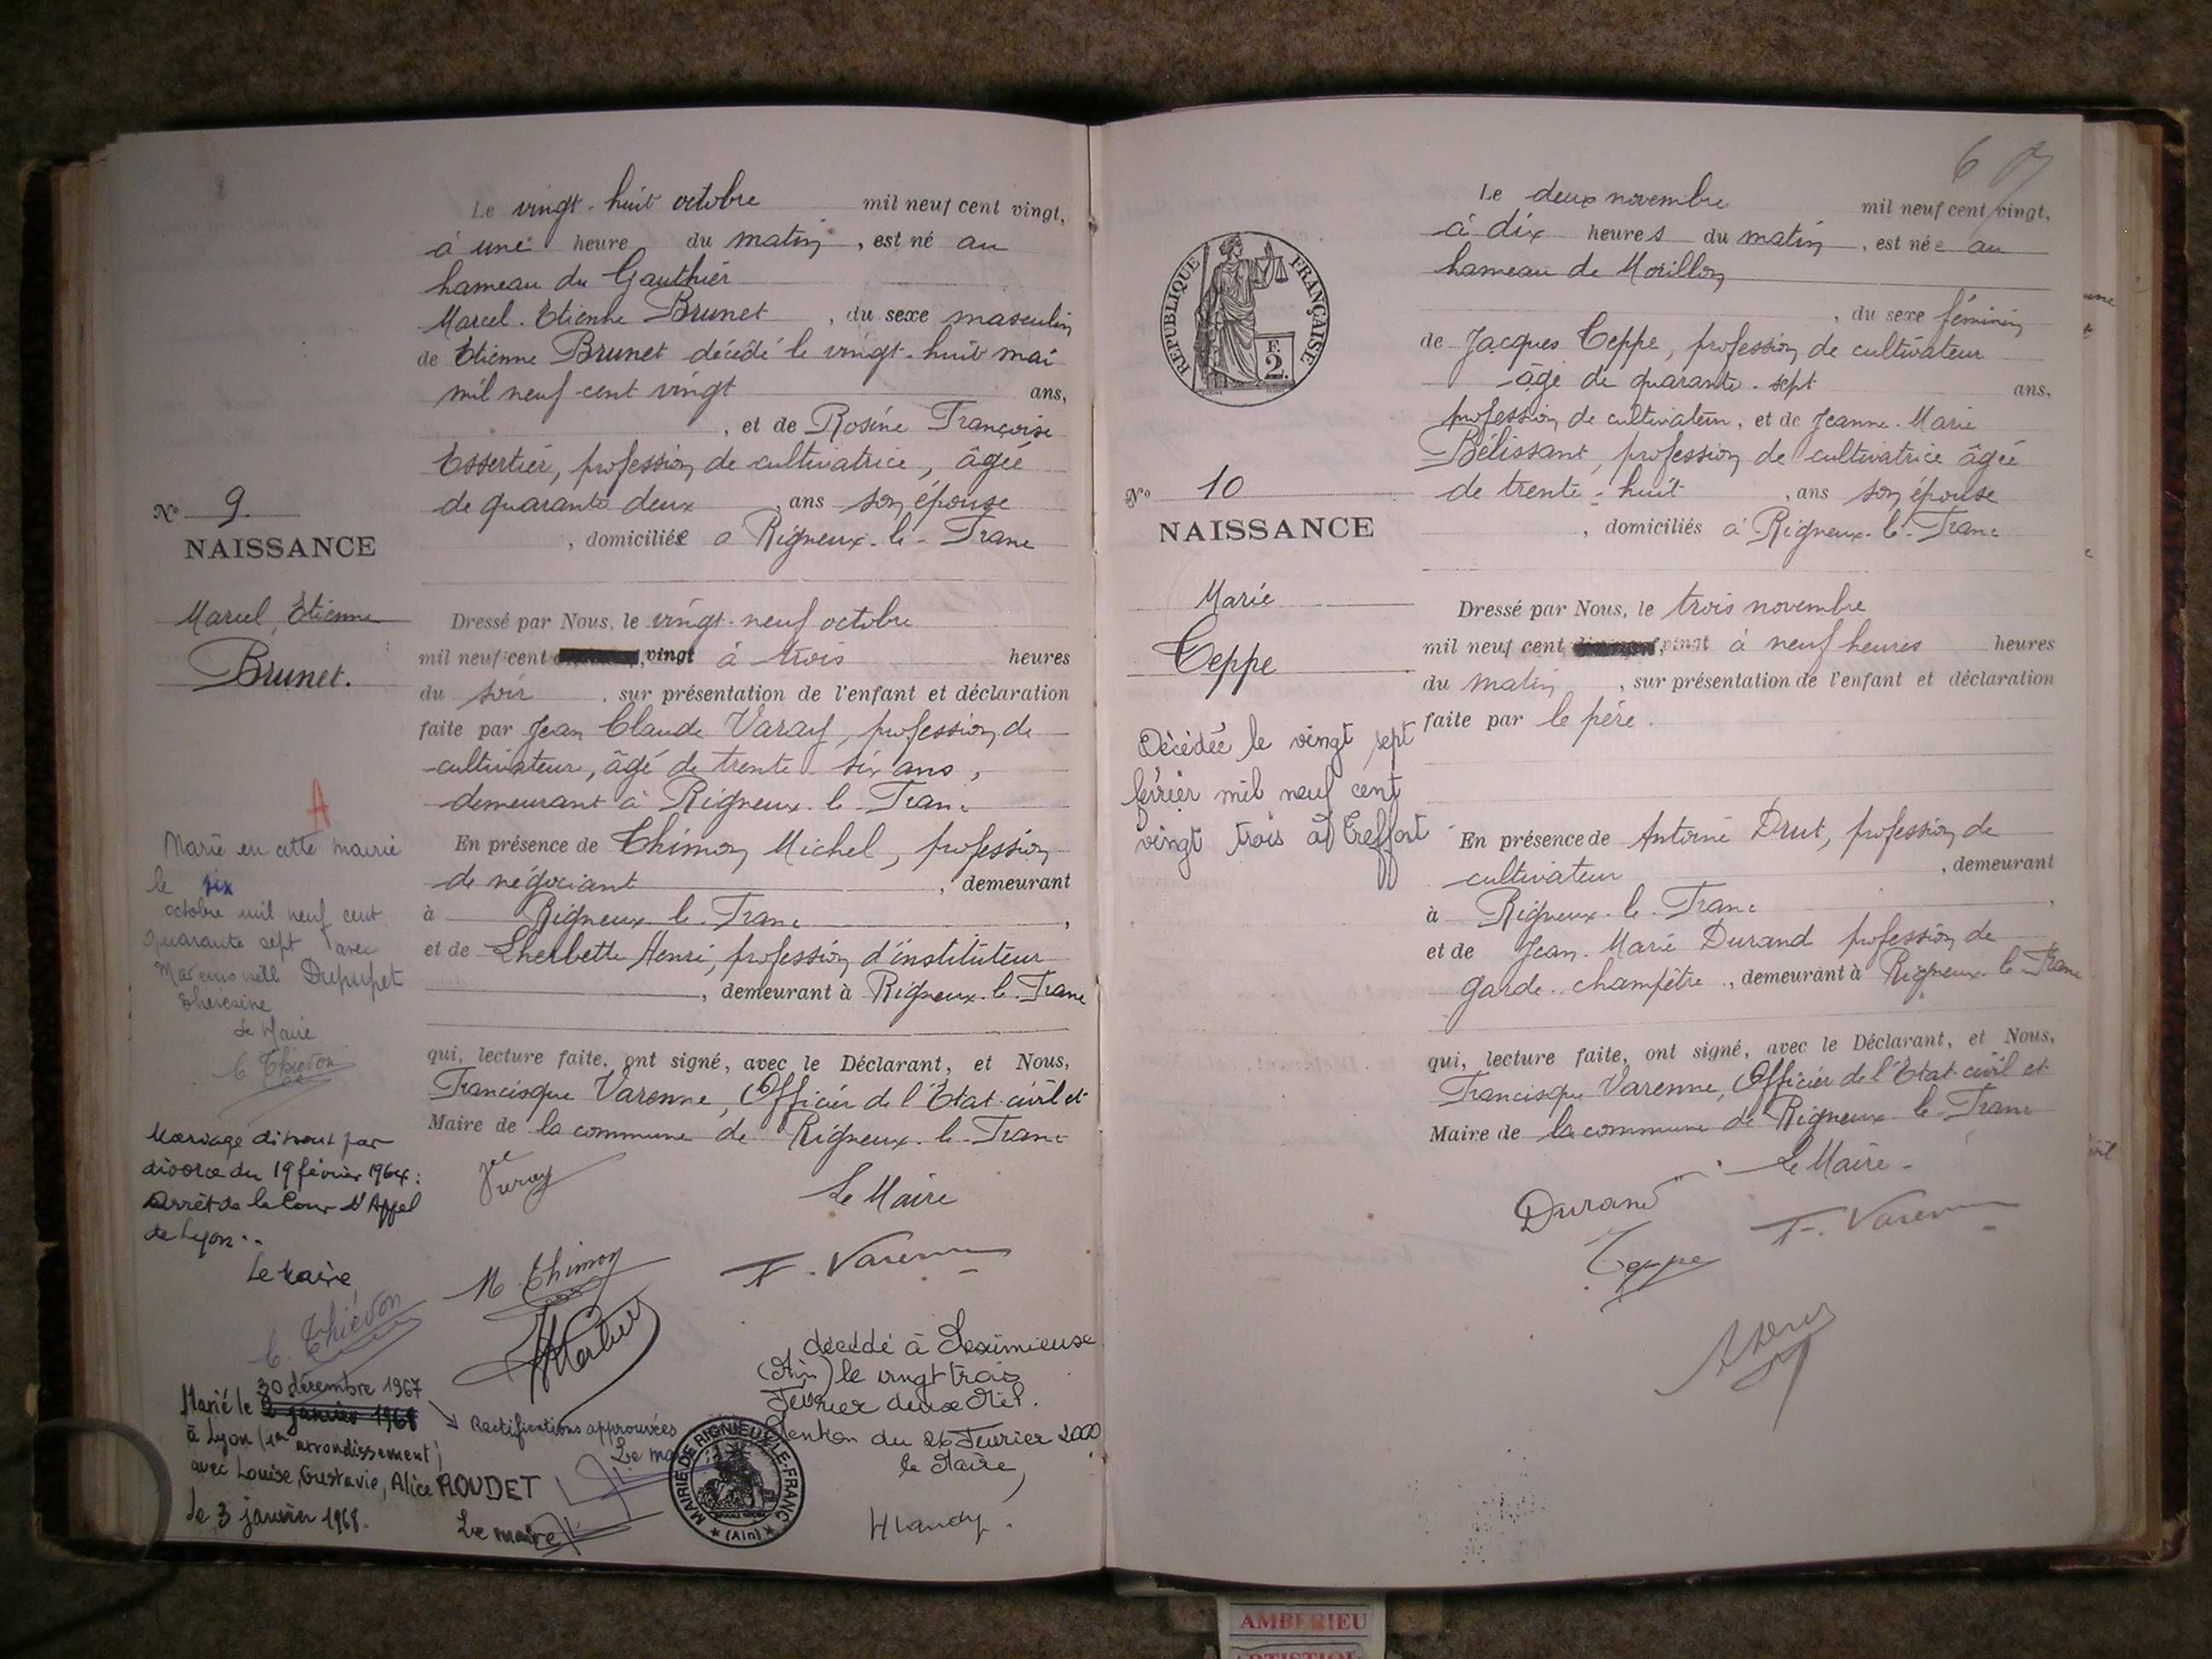 Le vingt-huit octobre mil neuf cent vingt,
à une heure du matin, est né au
hameau du Gauthier
Marcel. Etienne Brunet, du sexe masculin
de Etienne Brunet décédé le vingt-huit mai
mil neuf cent vingt ans,
, et de Rosine Françoise
Essertier, profession de cultivatrice, âgée
de quarante deux, ans son épouse
, domiciliée à Rigneux-le-Franc
Nº 9.
NAISSANCE
Marcel, Etienne
Brunet.
Dressé par Nous, le vingt-neuf octobre
mil neuf cent vingt à trois heures
du soir, sur présentation de l'enfant et déclaration
faite par Jean Claude Varay, profession de
cultivateur, âgé de trente-six ans,
demeurant à Rigneux-le-Franc
En présence de Thimon Michel, profession
de négociant, demeurant
à Rigneux-le-Franc,
et de Lherbette Henri, profession d'instituteur
, demeurant à Rigneux-le-Franc
qui, lecture faite, ont signé, avec le Déclarant, et Nous,
Francisque Varenne, Officier de l'Etat-civil et
Maire de la commune de Rigneux-le-Franc
Le Maire
M. Thimon
F. Varenne
A
Marié en cette mairie
le six
octobre mil neuf cent
quarante sept avec
Dupupet
Thérésine
Le Maire
C. Thiévon
Mariage dissout par
divorce du 19 février 1964:
Arrêt de la Cour d'Appel
de Lyon..
Le Maire,
C. Thiévon
30 décembre 1967
Marié le 2 janvier 1968
à Lyon (1er arrondissement)
avec Louise, Gustavie, Alice ROUDET
Le 3 janvier 1968.
Le maire
Rectifications approuvées
Le ma
MAIRIE DE RIGNIEUX-LE-FRANC
(Ain)
décédé à Meximieux
(Ain) le vingt trois
Février deux Mil.
Mention du 26 Février 2000
le Maire,
6
REPUBLIQUE FRANÇAISE
F.
2.
Le deux novembre mil neuf cent vingt,
à dix heures du matin, est née au
hameau de Morillon
, du sexe féminin
de Jacques Teppe, profession de cultivateur
âgé de quarante-sept ans,
profession de cultivateur, et de Jeanne-Marie
Bélissant, profession de cultivatrice âgée
de trente-huit, ans son épouse
, domiciliés à Rigneux-le-Franc
Nº 10
NAISSANCE
Marie
Teppe
Décédée le vingt sept
février mil neuf cent
vingt trois à Treffort
Dressé par Nous, le trois novembre
mil neuf cent vingt à neuf heures heures
du matin, sur présentation de l'enfant et déclaration
faite par le père.
En présence de Antoine Drut, profession de
cultivateur, demeurant
à Rigneux-le-Franc,
et de Jean-Marie Durand profession de
garde-champêtre, demeurant à Rigneux-le-Franc
qui, lecture faite, ont signé, avec le Déclarant, et Nous,
Francisque Varenne, Officier de l'Etat civil et
Maire de la commune de Rigneux-le-Franc
Le Maire
Durand
F. Varenne
Teppe
AMBERIEU